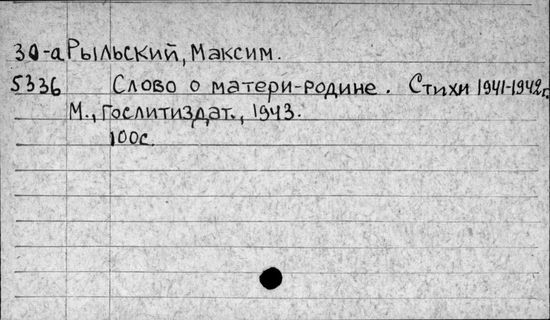 30-а Рыльский, Максим.
5336 Слово о матери-родине. Стихи 1941-1942г.
М., Гослитиздат., 1943.
100с.